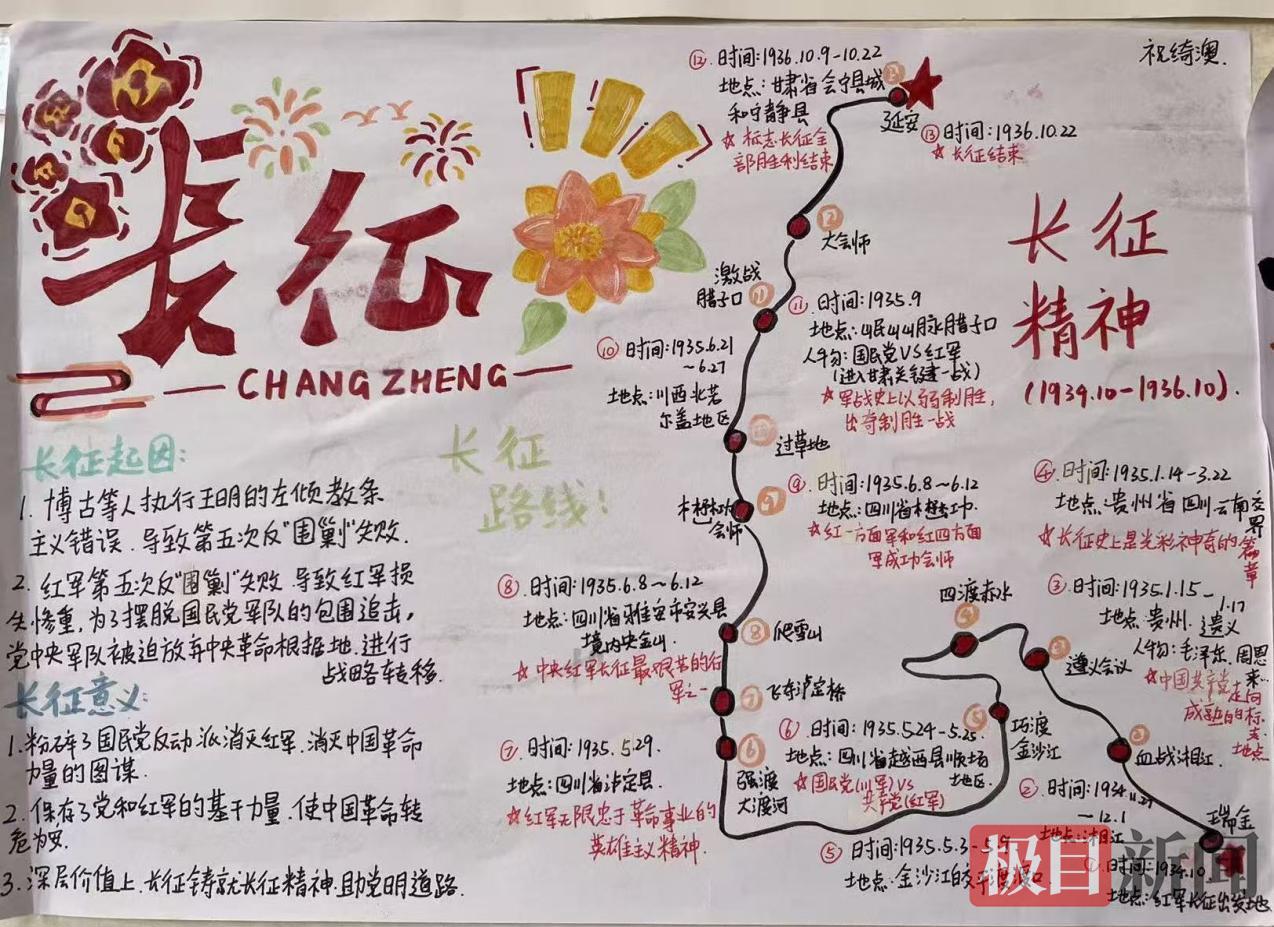 祝绮澳.
长征
CHANG ZHENG
长征起因:
1. 博古等人执行王明的左倾教条
主义错误.导致第五次反"围剿"失败.
2. 红军第五次反"围剿"失败.导致红军损
失惨重,为了摆脱国民党军队的包围追击,
党中央军队被迫放弃中央革命根据地.进行
战略转移.
长征意义:
1.粉碎了国民党反动派消灭红军.消灭中国革命
力量的图谋.
2.保存了党和红军的基干力量.使中国革命转
危为安.
3.深层价值上.长征铸就长征精神且助党明道路.
长征
路线:
长征
精神
(1934.10-1936.10).
⑫.时间:1936.10.9-10.22
地点:甘肃省会宁县城
和宁静县
☆标志长征全
部胜利结束
⑬
延安
⑬时间:1936.10.22
☆长征结束
⑫
大会师
激战
腊子口
⑪
⑪.时间:1935.9
地点:岷山山脉腊子口
人物:国民党VS红军
(进入甘肃关键一战)
☆军战史上以弱制胜,
出奇制胜一战
⑩时间:1935.6.21
~6.27
地点:川西北若
尔盖地区
⑩
过草地
⑨
懋功
会师
⑨.时间:1935.6.8~6.12
地点:四川省懋功.
☆红一方面军和红四方面
军成功会师
⑧.时间:1935.6.8~6.12
地点:四川省雅安市安兴县
境内夹金山.
☆中央红军长征最艰苦的行
军之一
⑧爬雪山
⑦飞夺泸定桥
⑦.时间:1935.5.29.
地点:四川省泸定县.
☆红军无限忠于革命事业的
英雄主义精神.
⑥
强渡
大渡河
⑥.时间:1935.5.24-5.25.
地点:四川省越西县顺场
地区.
☆国民党(川军)VS
共产党(红军)
⑤
巧渡
金沙江
⑤时间:1935.5.3-5.9
地点:金沙江皎平渡渡口
四渡赤水
④
④.时间:1935.1.14-3.22
地点:贵州省四川.云南交
界
☆长征史上最光彩神奇的篇
章
③
遵义会议
③时间:1935.1.15-
1.17
地点:贵州.遵义
人物:毛泽东.周恩
来…
☆中国共产党走向
成熟的标
志.
地点
②
血战湘江.
②.时间:1934.11.27
-12.1
地点:湘江
瑞金
①时间:1934.10
地点:红军长征出发地
极目新闻